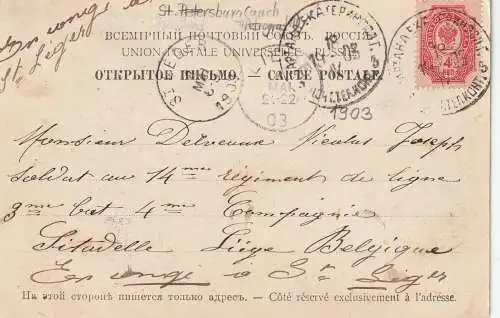 St. Petersburg (auch
En congé à
St. Léger
ВСЕМІРНЫЙ ПОЧТОВЫЙ СОЮЗЪ. РОССІЯ.
UNION POSTALE UNIVERSELLE. RUSSIE.
ОТКРЫТОЕ ПИСЬМО. — CARTE POSTALE.
ST LEGER
MAI
21-22
03
1903
4
Monsieur Delveaux Nicolas Joseph
soldat au 14me régiment de ligne
3me bat 4me Compagnie
Citadelle Liège Belgique
En congé à St Léger
На этой сторонѣ пишется только адресъ. — Côté réservé exclusivement à l'adresse.